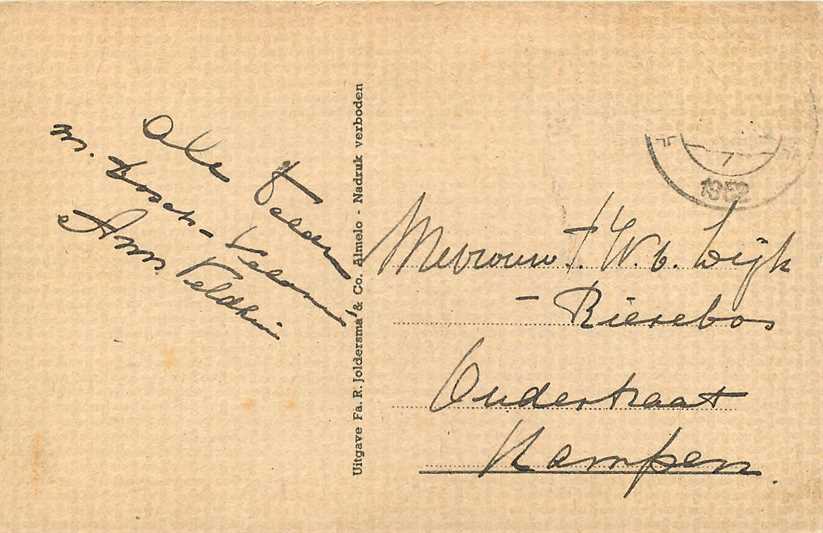 M. Bosch-
Ann. Veldhui
Uitgave Fa. R. Joldersma & Co. Almelo - Nadruk verboden
7
1952
Mevrouw f. W. v. Wijk
- Riesebos
Oudestraat
Kampen.